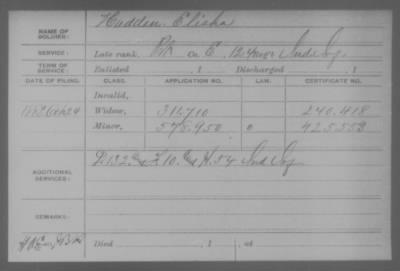 NAME OF SOLDIER: Hadden, Elisha
SERVICE: Late rank, Pvt Co. E, 124 Ind
TERM OF SERVICE: Enlisted , 1 Discharged , 1
DATE OF FILING. CLASS. APPLICATION NO. LAW. CERTIFICATE NO.
Invalid,
Widow, 311,710 240,418
Minor, 575,950 425,553
ADDITIONAL SERVICES: D 132 F 10 H 54 Ind Inf
REMARKS:
Died , 1 , at